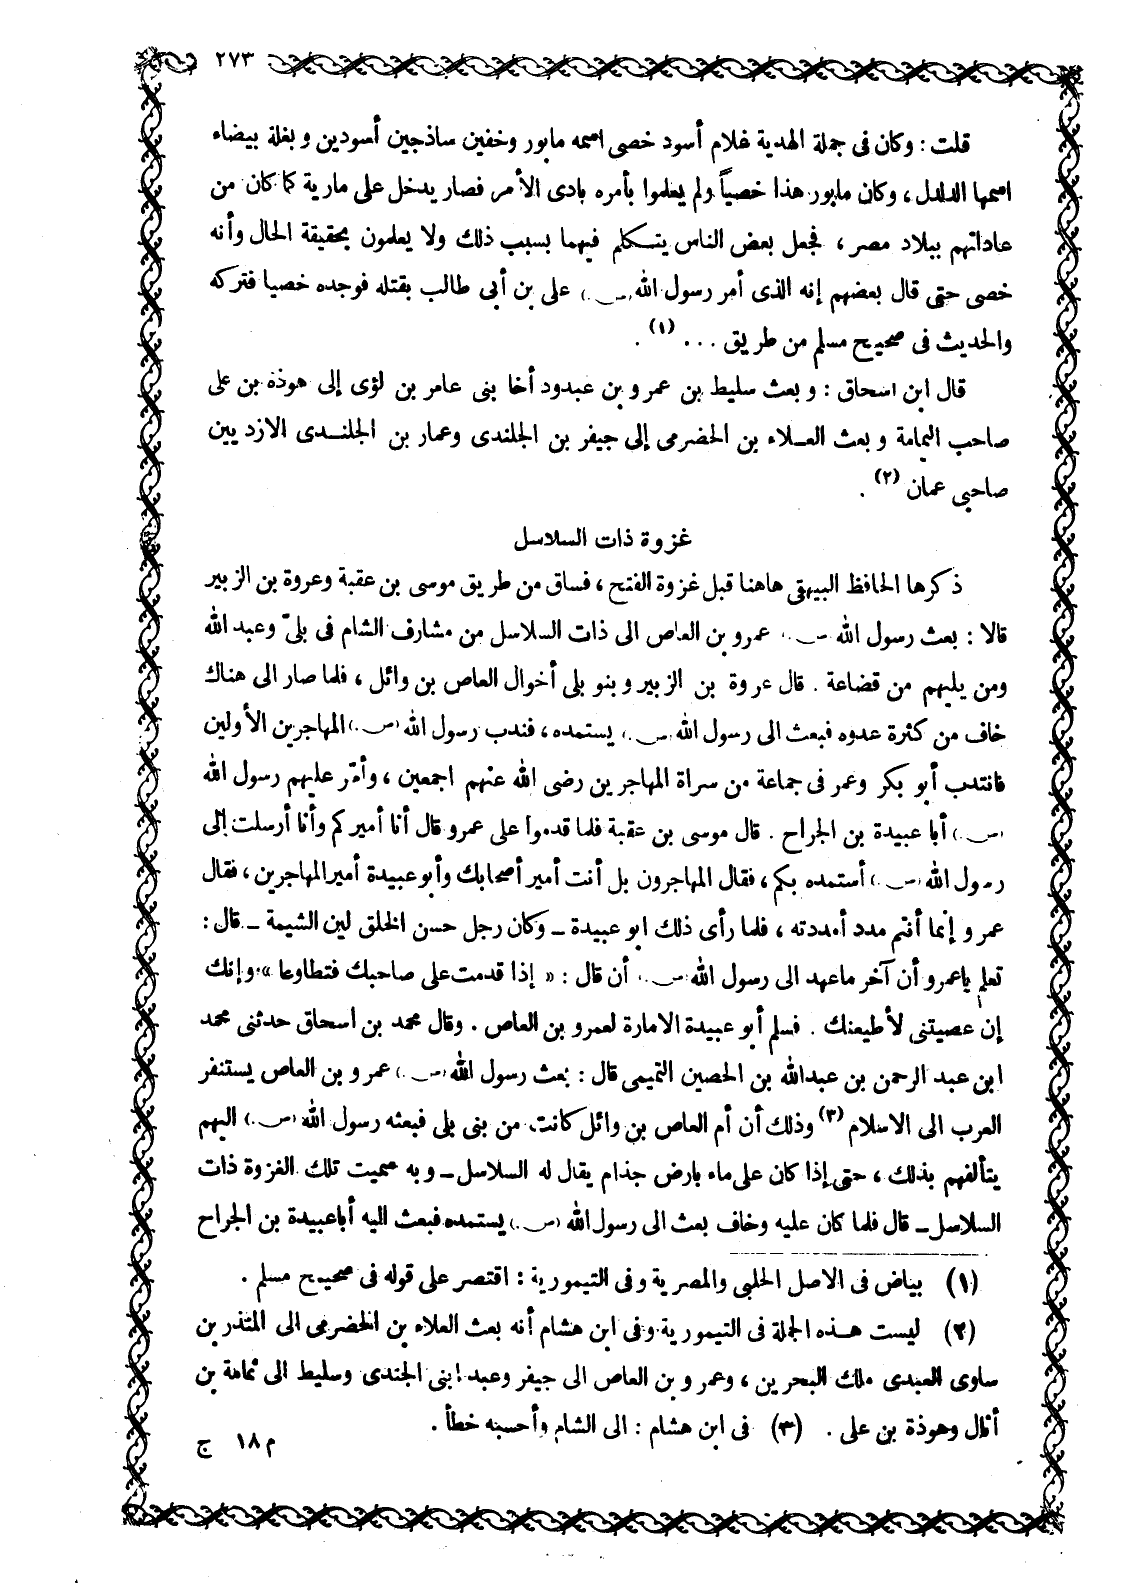 ٢٧٣
قلت : وكان فى جملة الهدية غلام أسود خصى اسمه مابور وخفين ساذجين أسودين وبغلة بيضاء
اسمها الدلدل ، وكان مابور هذا خصياً ولم يعلموا بأمره بادى الأمر فصار يدخل على مارية كما كان من
عاداتهم ببلاد مصر ، فجعل بعض الناس يتكلم فيهما بسبب ذلك ولا يعلمون بحقيقة الحال وأنه
خصى حتى قال بعضهم إنه الذى أمر رسول الله (ص.) على بن أبى طالب بقتله فوجده خصيا فتركه
والحديث فى صحيح مسلم من طريق ... (١) .
قال ابن اسحاق : وبعث سليط بن عمرو بن عبدود أخا بنى عامر بن لؤى إلى هوذة بن على
صاحب اليمامة وبعث العلاء بن الحضرمى إلى جيفر بن الجلندى وعمار بن الجلندى الازديين
صاحبى عمان (٢) .
غزوة ذات السلاسل
ذكرها الحافظ البيهقى هاهنا قبل غزوة الفتح ، فساق من طريق موسى بن عقبة وعروة بن الزبير
قالا : بعث رسول الله (ص.) عمرو بن العاص الى ذات السلاسل من مشارف الشام فى بلىّ وعبد الله
ومن يليهم من قضاعة . قال عروة بن الزبير وبنو بلى أخوال العاص بن وائل ، فلما صار الى هناك
خاف من كثرة عدوه فبعث الى رسول الله (ص.) يستمده ، فندب رسول الله (ص.) المهاجرين الأولين
فانتدب أبو بكر وعمر فى جماعة من سراة المهاجرين رضى الله عنهم اجمعين ، وأمّر عليهم رسول الله
(ص.) أبا عبيدة بن الجراح . قال موسى بن عقبة فلما قدموا على عمرو قال أنا أميركم وأنا أرسلت إلى
رسول الله (ص.) أستمده بكم ، فقال المهاجرون بل أنت أمير أصحابك وأبو عبيدة أمير المهاجرين ، فقال
عمرو إنما أنتم مدد أمددته ، فلما رأى ذلك ابو عبيدة ـ وكان رجل حسن الخلق لين الشيمة ـ قال :
تعلم ياعمرو أن آخر ماعهد الى رسول الله (ص.) أن قال : « إذا قدمت على صاحبك فتطاوعا » وإنك
إن عصيتنى لأطيعنك . فسلم أبو عبيدة الامارة لعمرو بن العاص . وقال محمد بن اسحاق حدثنى محمد
ابن عبد الرحمن بن عبدالله بن الحصين التميمى قال : بعث رسول الله (ص.) عمرو بن العاص يستنفر
العرب الى الاسلام (٣) وذلك أن أم العاص بن وائل كانت من بنى بلى فبعثه رسول الله (ص.) اليهم
يتألفهم بذلك ، حتى إذا كان على ماء بارض جذام يقال له السلاسل ـ وبه سميت تلك الغزوة ذات
السلاسل ـ قال فلما كان عليه وخاف بعث الى رسول الله (ص.) يستمده فبعث اليه أباعبيدة بن الجراح
(١) بياض فى الاصل الحلبى والمصرية وفى التيمورية : اقتصر على قوله فى صحيح مسلم .
(٢) ليست هذه الجملة فى التيمورية وفى ابن هشام أنه بعث العلاء بن الحضرمى الى المنذر بن
ساوى العبدى ملك البحرين ، وعمرو بن العاص الى جيفر وعبد ابنى الجندى وسليط الى ثمامة بن
أثال وهوذة بن على . (٣) فى ابن هشام : الى الشام وأحسبه خطأ .
م ١٨ ج